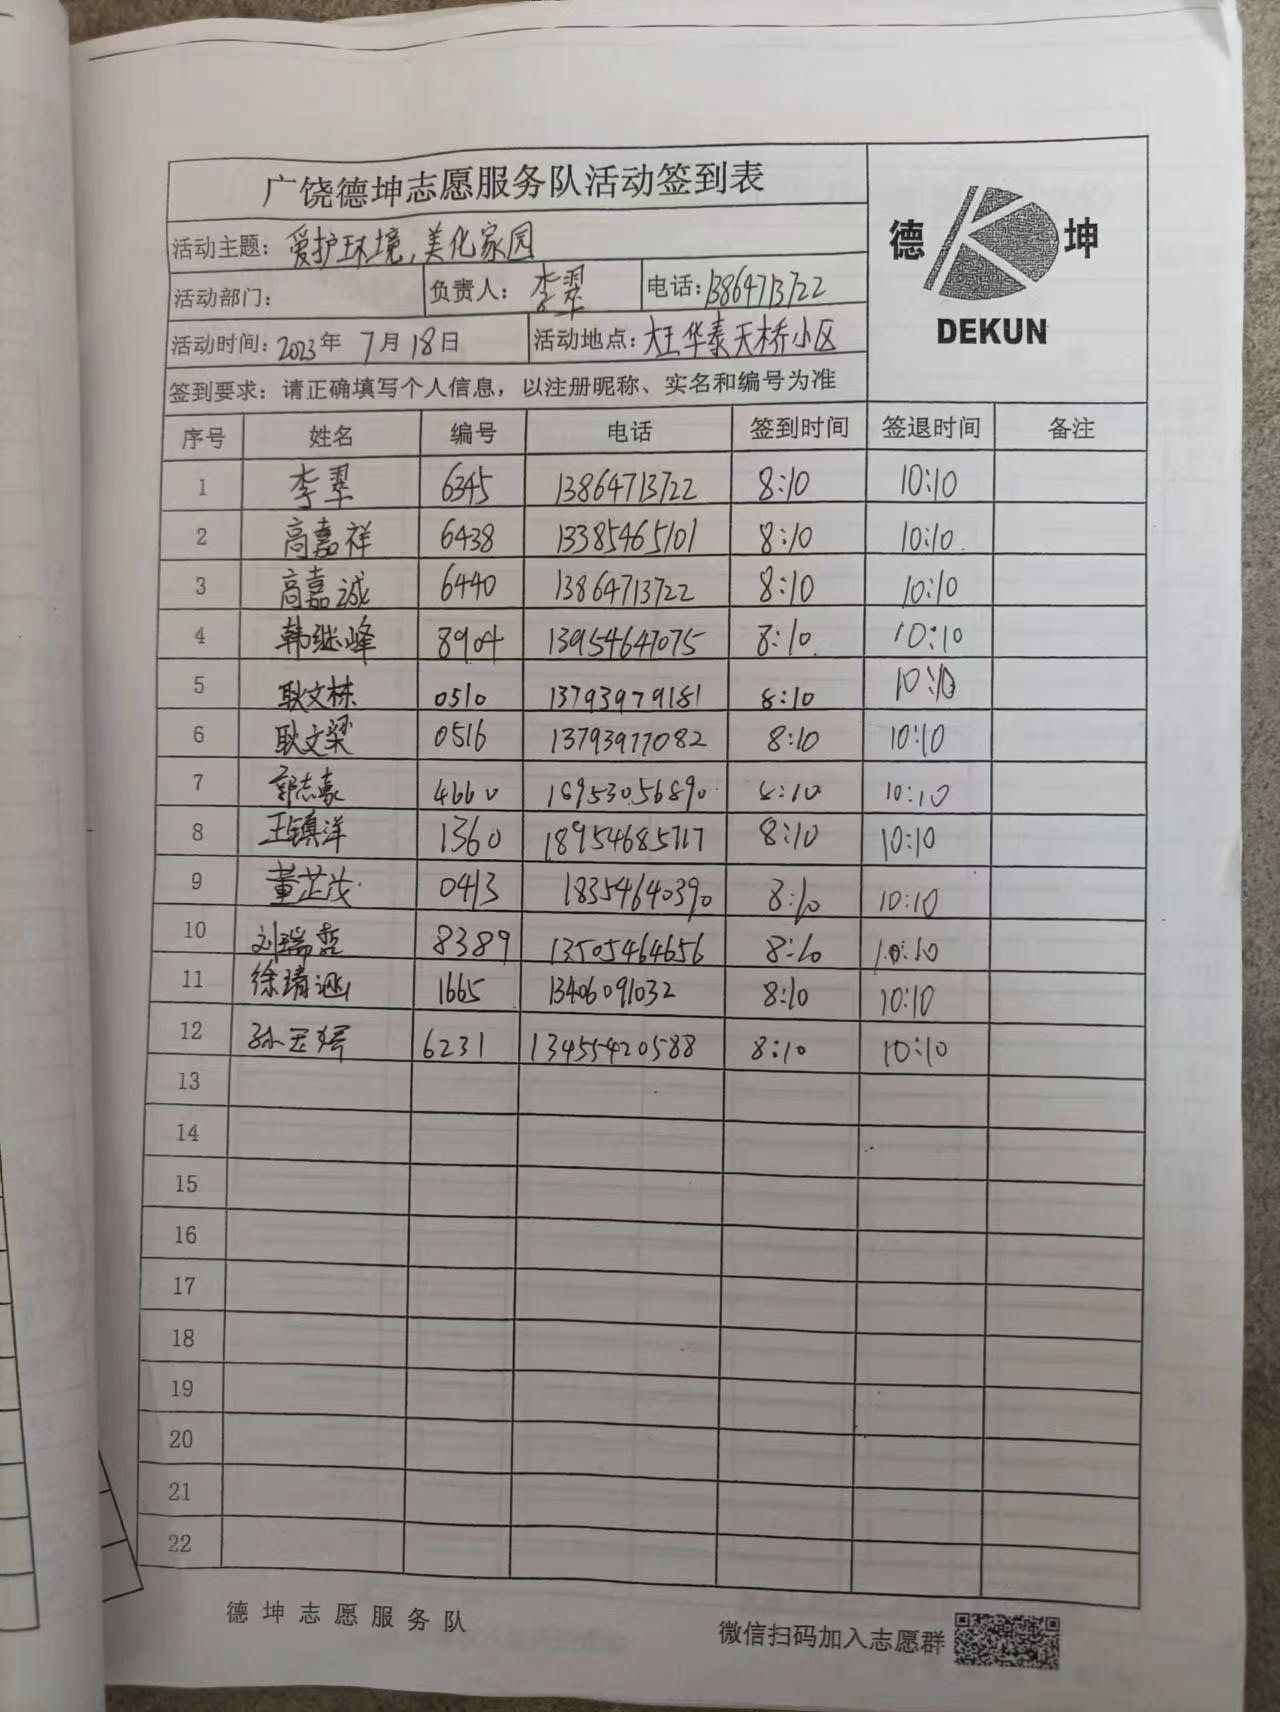 广饶德坤志愿服务队活动签到表
德 坤
DEKUN
活动主题：爱护环境，美化家园
活动部门： 负责人：李翠 电话：13864713722
活动时间：2023年 7月18日 活动地点：大王华泰天桥小区
签到要求：请正确填写个人信息，以注册昵称、实名和编号为准
序号 姓名 编号 电话 签到时间 签退时间 备注
1 李翠 6345 13864713722 8:10 10:10
2 高嘉祥 6438 13385465101 8:10 10:10
3 高嘉诚 6440 13864713722 8:10 10:10
4 韩继峰 8904 13954647075 8:10 10:10
5 耿文栋 0510 13793979181 8:10 10:10
6 耿文梁 0516 13793977082 8:10 10:10
7 郭志豪 4660 18953056890 8:10 10:10
8 王镇洋 1360 18954685717 8:10 10:10
9 董芷茂 0413 18354640390 8:10 10:10
10 刘瑞哲 8389 13505464656 8:10 10:10
11 徐靖涵 1665 13406091032 8:10 10:10
12 孙 6231 13455420588 8:10 10:10
13
14
15
16
17
18
19
20
21
22
德坤志愿服务队 微信扫码加入志愿群